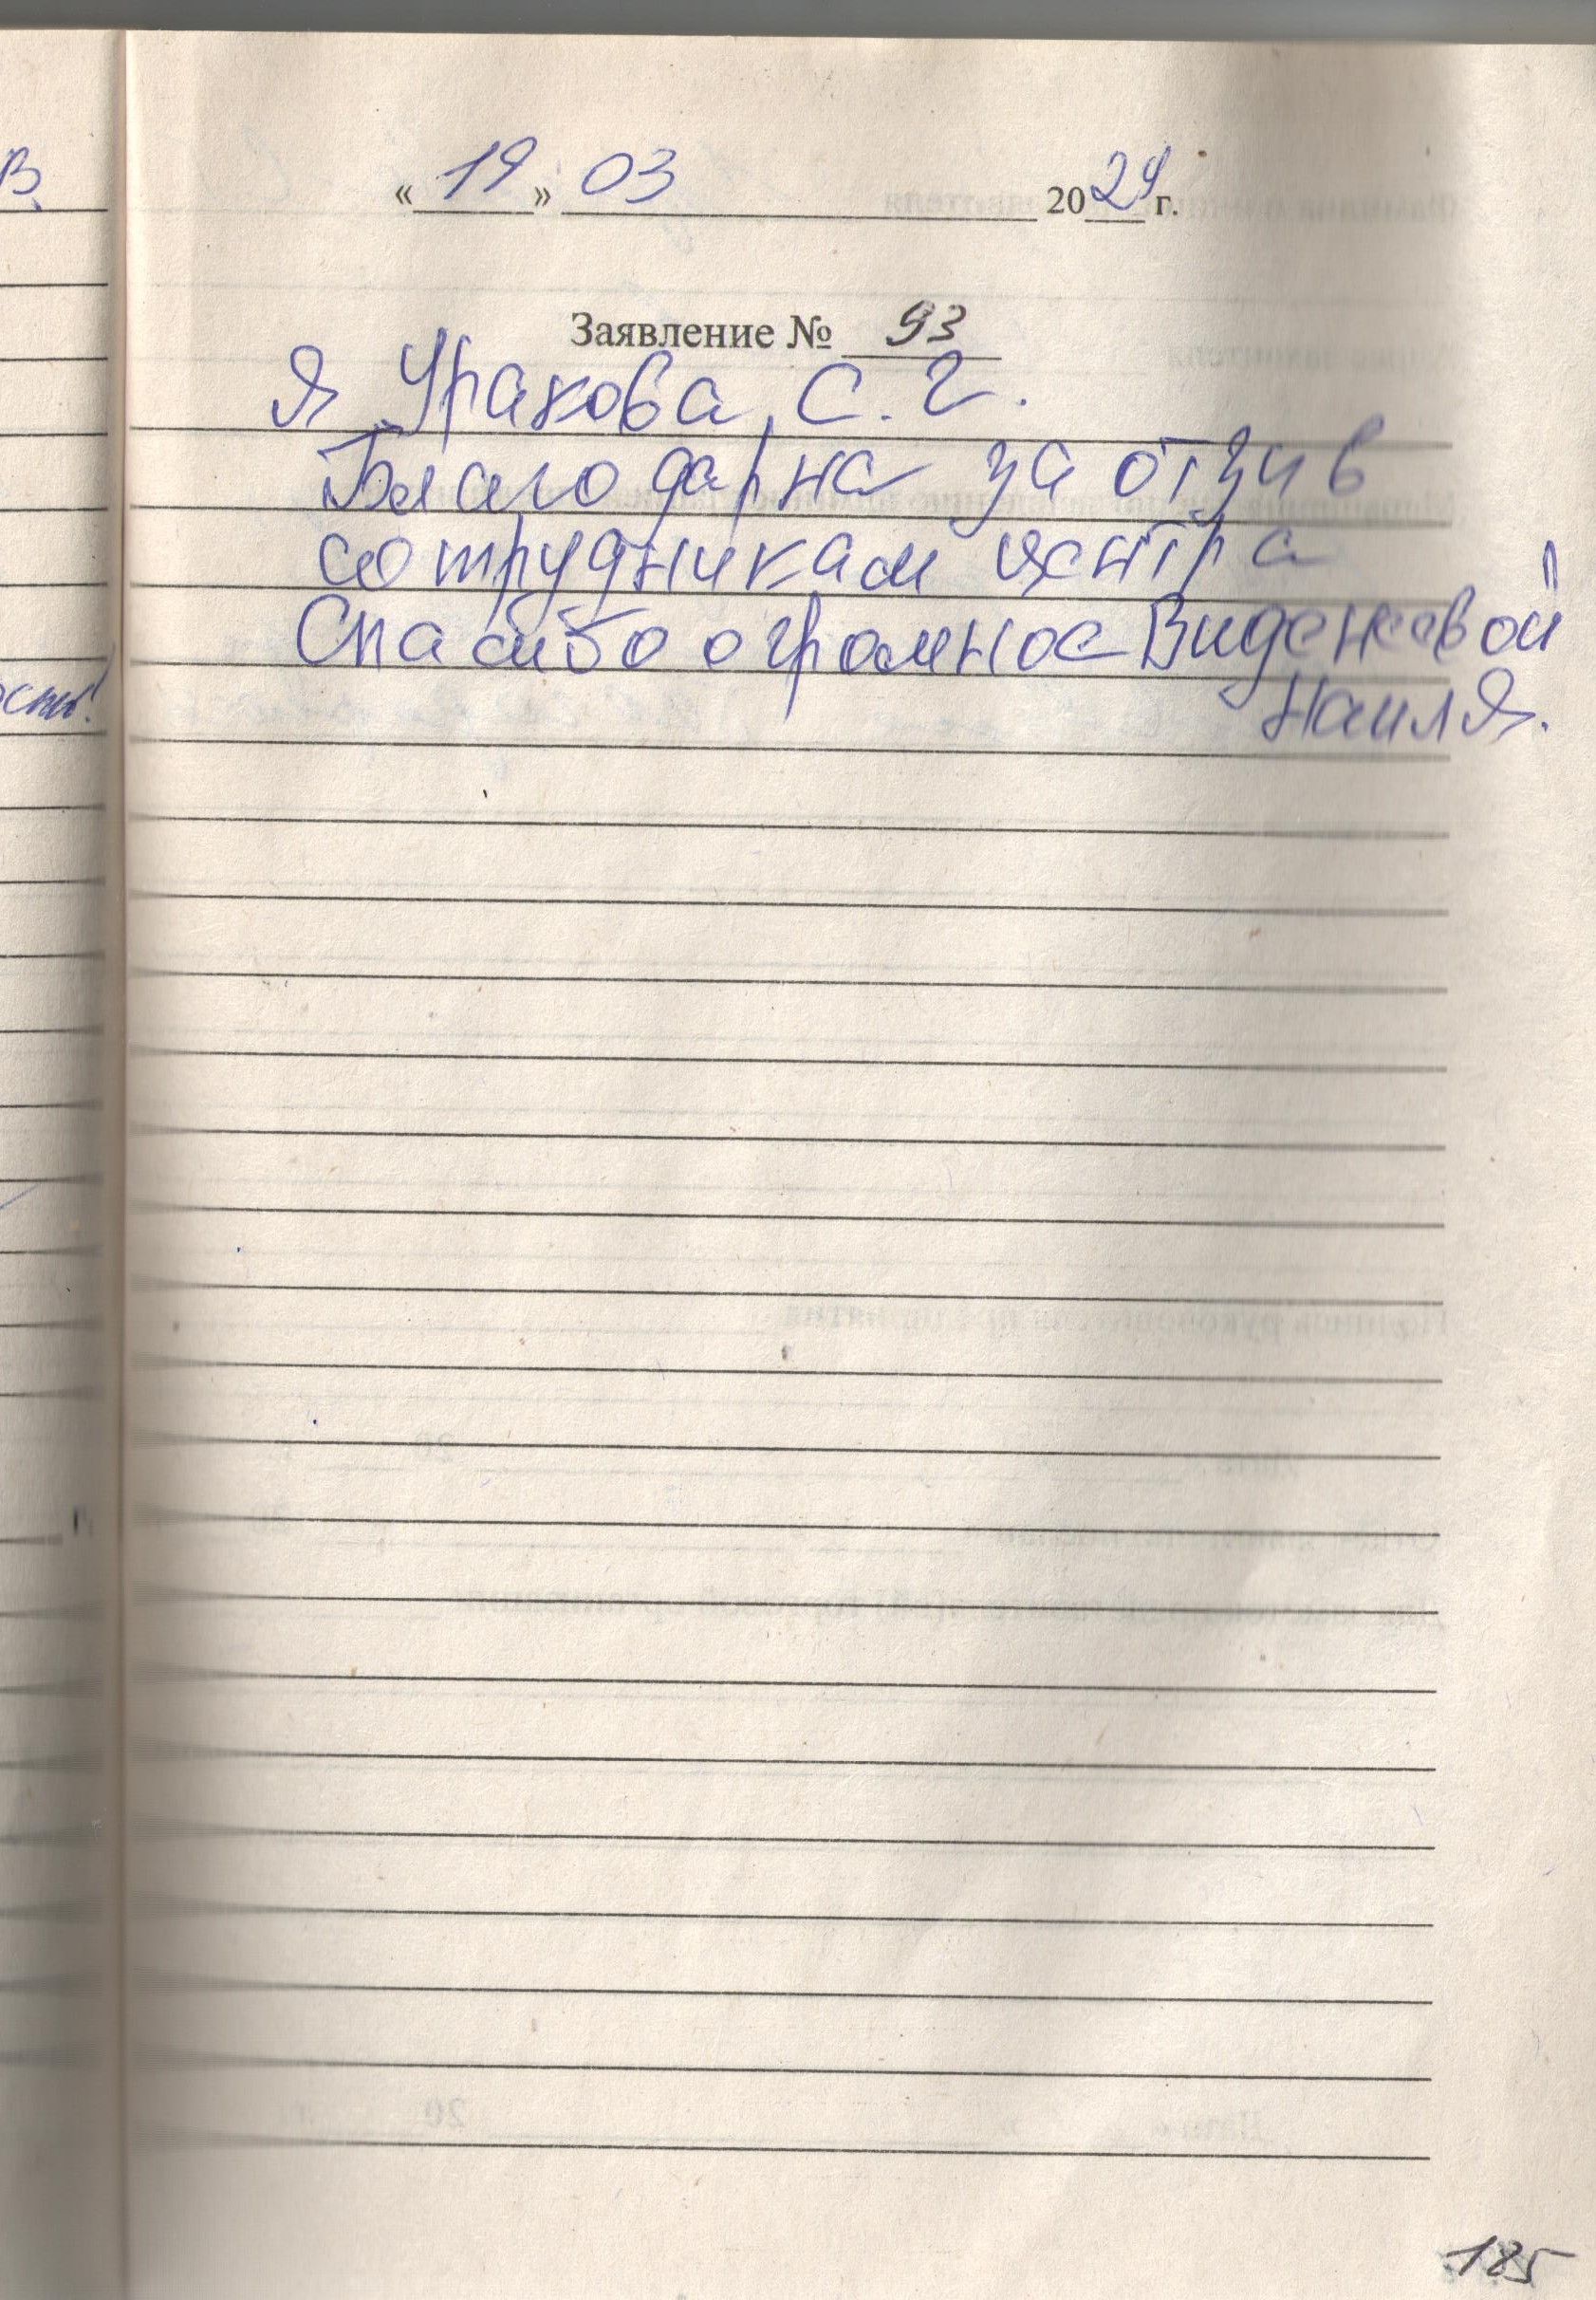 В.
ость!
« 19 » 03 2024 г.
Заявление № 93
Я Уракова С. Г.
Благодарна за отзив
сотрудникам центра
Спасибо огромное Виденеевой
Наиля.
185